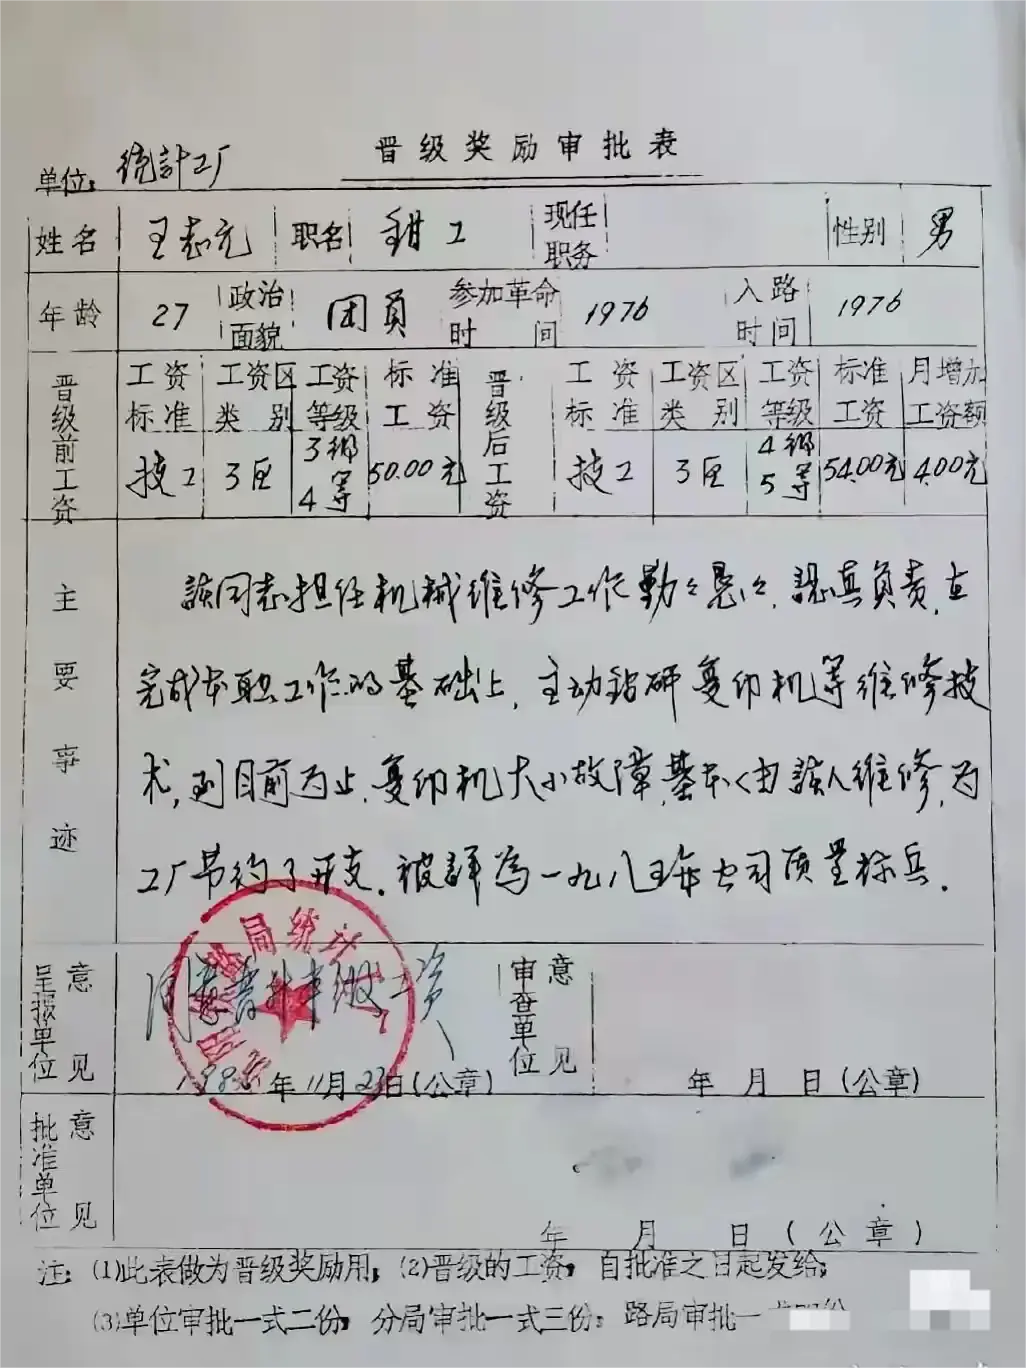 晋级奖励审批表
单位: 统計工厂
姓名 王志元 职名 钳工 现任职务 性别 男
年龄 27 政治面貌 团員 参加革命时间 1976 入路时间 1976
晋级前工资 工资标准 工资区类别 工资等级 标准工资 晋级后工资 工资标准 工资区类别 工资等级 标准工资 月增加工资额
技工 3区 3级4等 50.00元 技工 3区 4级5等 54.00元 4.00元
主要事迹
該同志担任机械维修工作勤々恳々,認真負责,在
完成本职工作的基础上,主动钻研复印机等维修技
术,到目前为止,复印机大小故障,基本由該人维修,为
工厂节约了开支.被評為一九八五年公司质量标兵.
呈报单位意见 同意晋升半级工资 审查单位意见
198 年11月23日(公章) 年 月 日(公章)
批准单位意见
年 月 日(公章)
注: (1)此表做为晋级奖励用; (2)晋级的工资, 自批准之日起发给;
(3)单位审批一式二份, 分局审批一式三份; 路局审批一
局统计